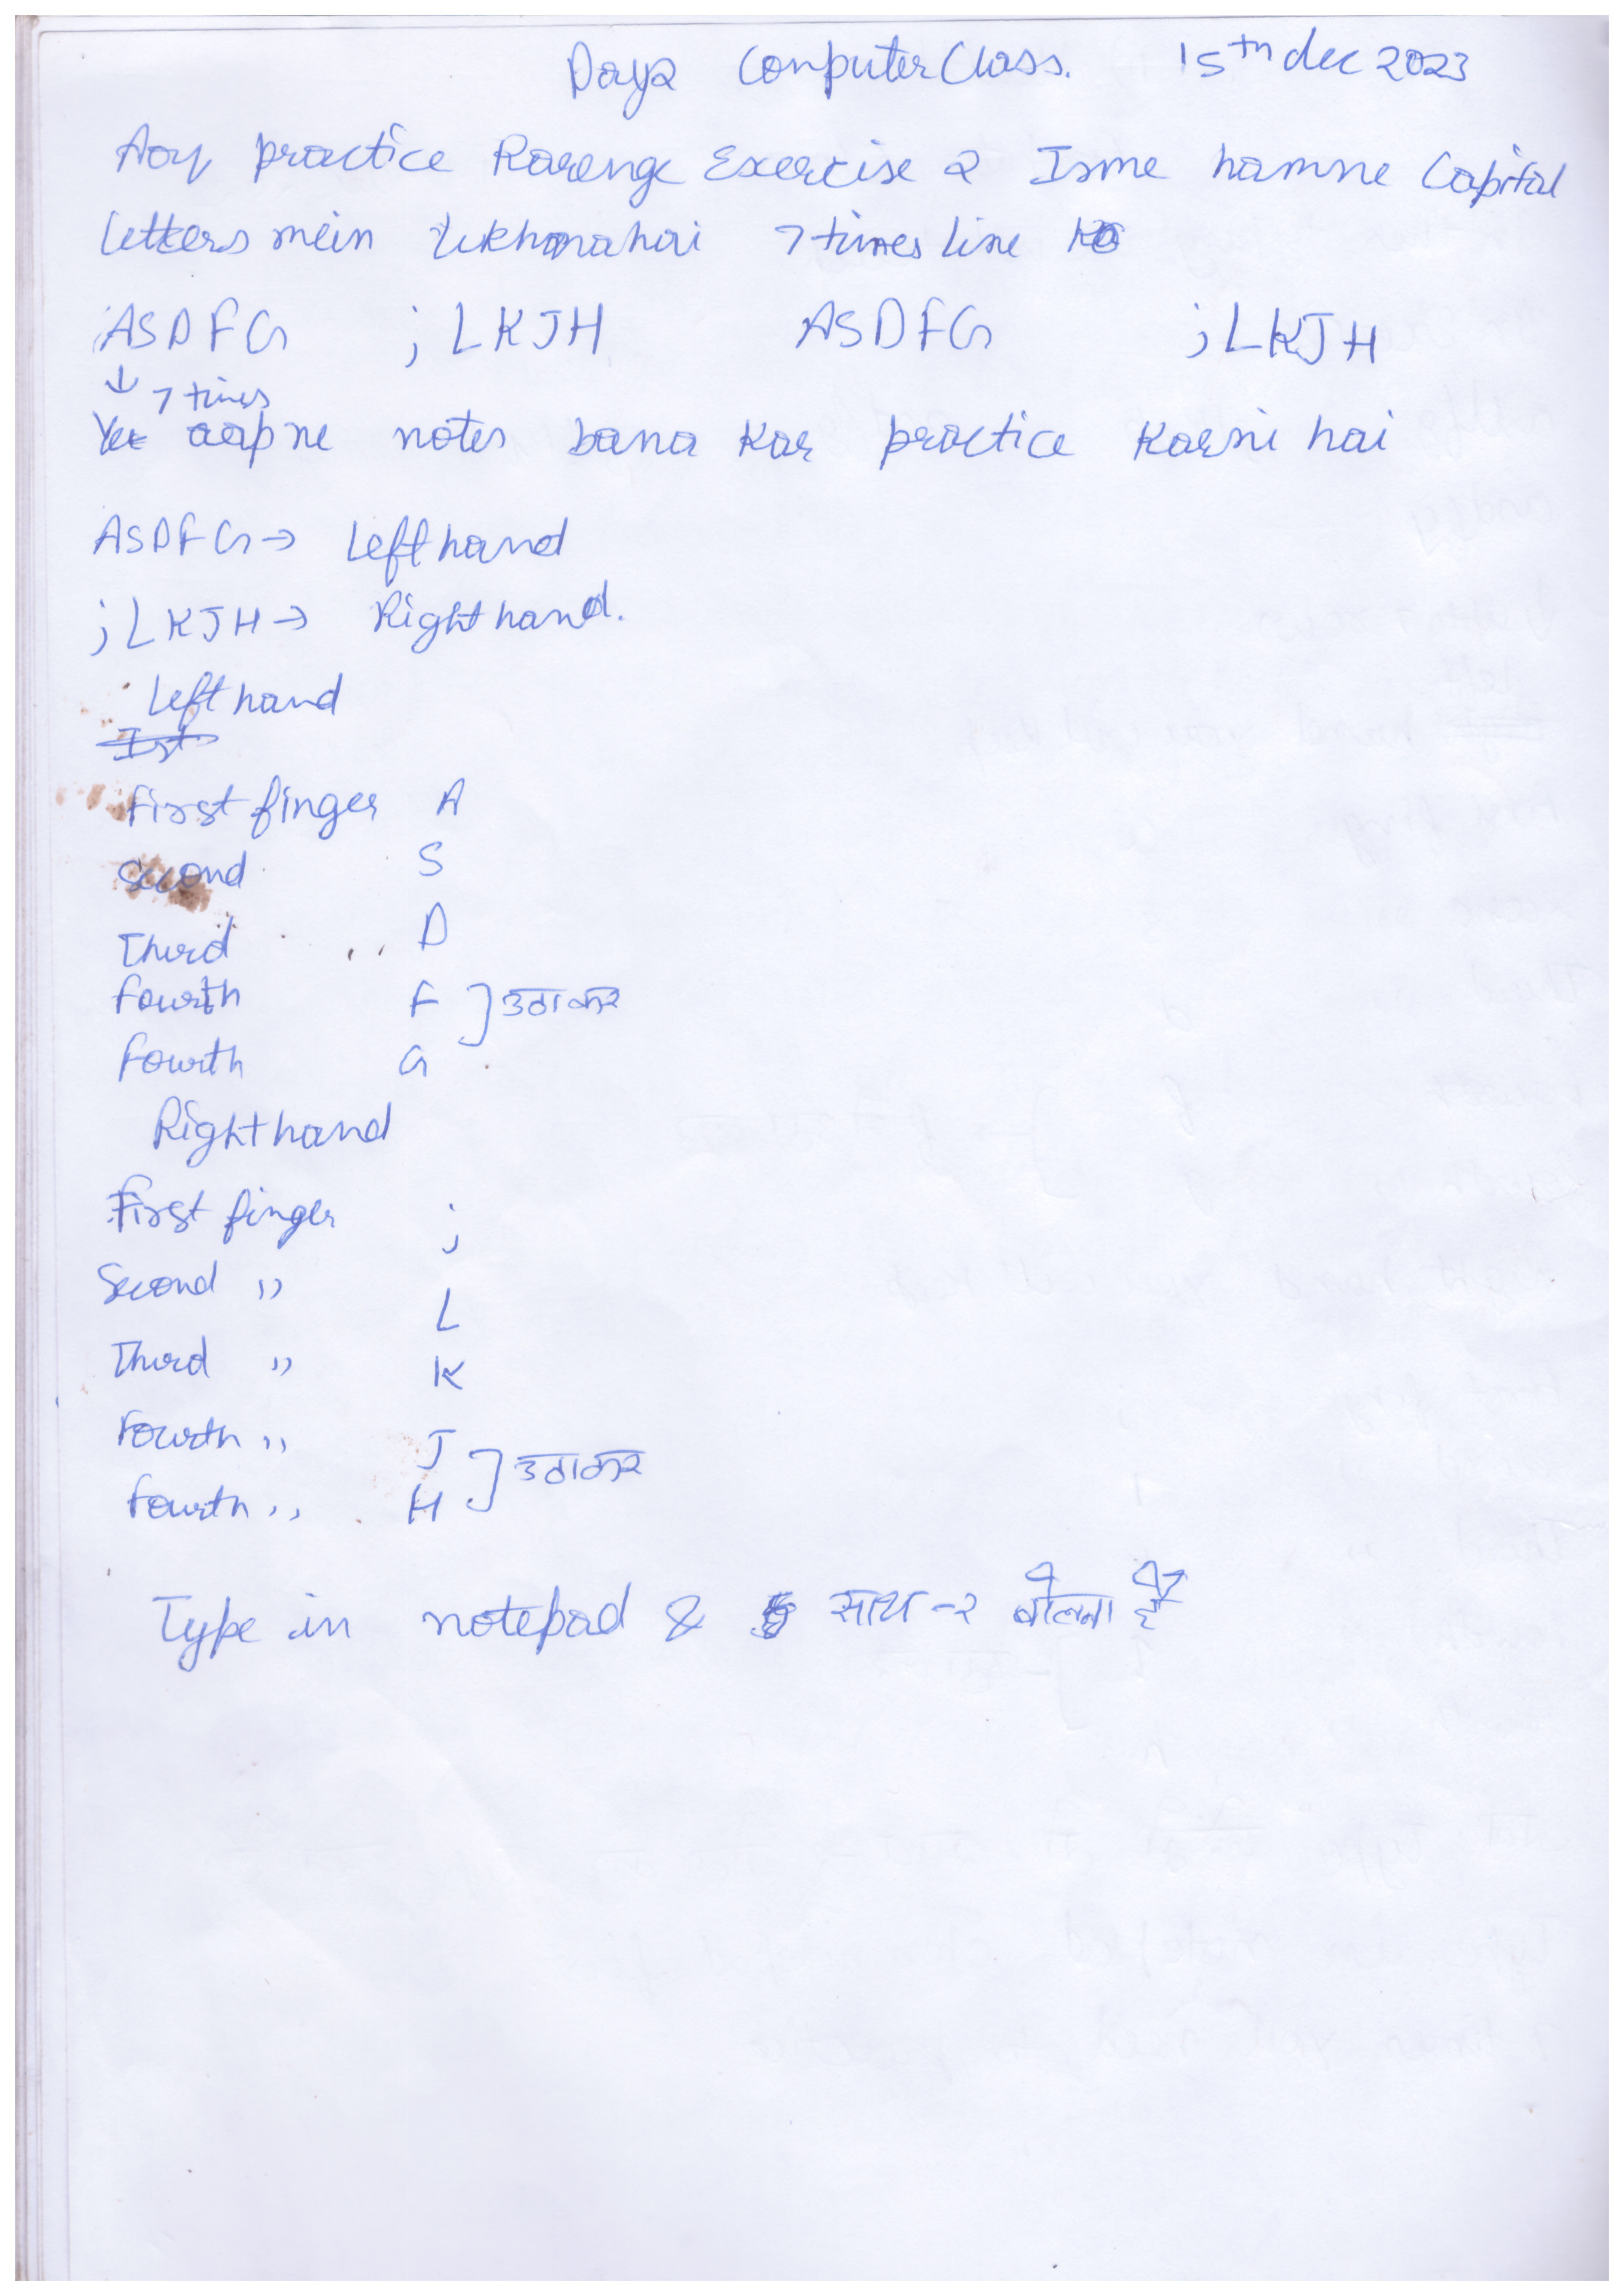 Day2 Computer Class. 15th dec 2023
Aoy practice Karenge Exercise 2 Isme hamne Capital
letters mein likhna hai 7 times line
ASDFG ;LKJH ASDFG ;LKJH
↓ 7 times
Ye aapne notes bana kar practice karni hai
ASDFG → Left hand
;LKJH → Right hand.
Left hand
Ist
First finger A
Second S
Third D
Fourth F ] उठाकर
Fourth G
Right hand
First finger ;
Second ,, L
Third ,, K
Fourth ,, J ] उठाकर
Fourth ,, H
Type in notepad & साथ-२ बोलना है